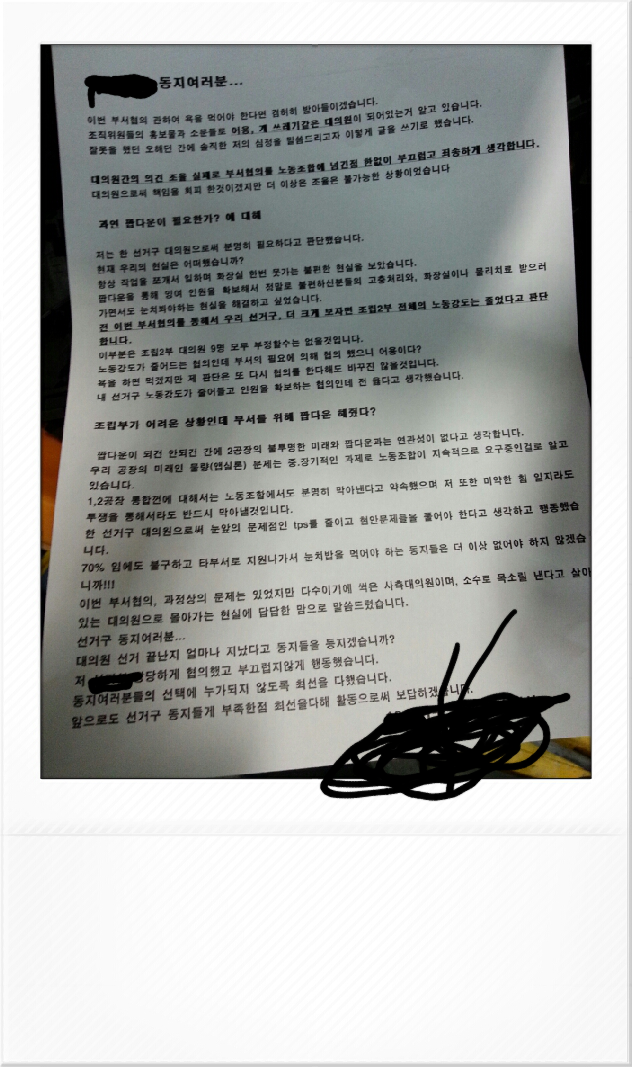 동지여러분...
이번 부서협의 관하여 욕을 먹어야 한다면 겸허히 받아들이겠습니다.
조직위원들의 홍보물과 소문들로 어용, 개 쓰레기같은 대의원이 되어있는거 알고 있습니다.
잘못을 했던 오해던 간에 솔직한 저의 심정을 말씀드리고자 이렇게 글을 쓰기로 했습니다.
대의원간의 의견 조율 실패로 부서협의를 노동조합에 넘긴점 한없이 부끄럽고 죄송하게 생각합니다.
대의원으로써 책임을 회피 한것이겠지만 더 이상은 조율은 불가능한 상황이었습니다
과연 짭다운이 필요한가? 에 대해
저는 한 선거구 대의원으로써 분명히 필요하다고 판단했습니다.
현재 우리의 현실은 어떠했습니까?
항상 작업을 쪼개서 일하며 화장실 한번 못가는 불편한 현실을 보았습니다.
짭다운을 통해 잉여 인원을 확보해서 정말로 불편하신분들의 고충처리와, 화장실이나 물리치료 받으러
가면서도 눈치봐야하는 현실을 해결하고 싶었습니다.
전 이번 부서협의를 통해서 우리 선거구, 더 크게 보자면 조립2부 전체의 노동강도는 줄었다고 판단
합니다.
이부분은 조립2부 대의원 9명 모두 부정할수는 없을것입니다.
노동강도가 줄어드는 협의인데 부서의 필요에 의해 협의 했으니 어용이다?
욕을 하면 먹겠지만 제 판단은 또 다시 협의를 한다해도 바꾸진 않을것입니다.
내 선거구 노동강도가 줄어들고 인원을 확보하는 협의인데 전 옳다고 생각했습니다.
조립부가 어려운 상황인데 부서를 위해 짭다운 해줬다?
짭다운이 되건 안되건 간에 2공장의 불투명한 미래와 짭다운과는 연관성이 없다고 생각합니다.
우리 공장의 미래인 물량(앱실론) 문제는 중.장기적인 과제로 노동조합이 지속적으로 요구중인걸로 알고
있습니다.
1,2공장 통합껀에 대해서는 노동조합에서도 분명히 막아낸다고 약속했으며 저 또한 미약한 힘 일지라도
투쟁을 통해서라도 반드시 막아낼것입니다.
한 선거구 대의원으로써 눈앞의 문제점인 tps를 줄이고 현안문제들을 풀어야 한다고 생각하고 행동했습
니다.
70% 임에도 불구하고 타부서로 지원나가서 눈치밥을 먹어야 하는 동지들은 더 이상 없어야 하지 않겠습
니까!!!
이번 부서협의, 과정상의 문제는 있었지만 다수이기에 썩은 사측대의원이며, 소수로 목소릴 낸다고 살아
있는 대의원으로 몰아가는 현실에 답답한 맘으로 말씀드렸습니다.
선거구 동지여러분...
대의원 선거 끝난지 얼마나 지났다고 동지들을 등지겠습니까?
저 당하게 협의했고 부끄럽지않게 행동했습니다.
동지여러분들의 선택에 누가되지 않도록 최선을 다했습니다.
앞으로도 선거구 동지들게 부족한점 최선을다해 활동으로써 보답하겠습니다.